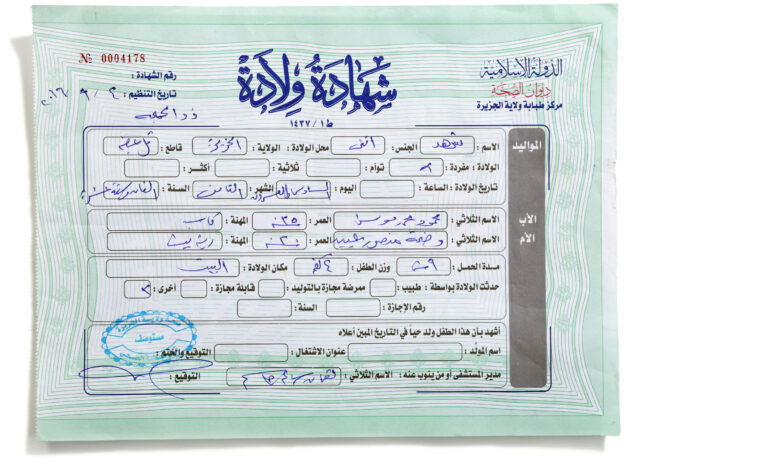 الدولة الإسلامية
ديوان الصحة
مركز طبابة ولاية الجزيرة
شهادة ولادة
ط١ / ١٤٣٧
№ 0004178
رقم الشهادة :
تاريخ التنظيم : ٢ / ٩ / ٢٠١٦
ذو الحجة
المواليد
الاسم : شهد الجنس : انثى محل الولادة : الولاية : الجزيرة قاطع :
الولادة : مفردة : توأم : ثلاثية : أكثر :
تاريخ الولادة : الساعة : اليوم : السادس والعشرون الشهر : الثامن السنة : الفان وستة عشر
الأب
الاسم الثلاثي : محمود محمد موسى العمر : ٣٥ سنة المهنة :
الأم
الاسم الثلاثي : العمر : ٢٠ سنة المهنة : ربة بيت
مدة الحمل : وزن الطفل : ٤ كغ مكان الولادة : البيت
حدثت الولادة بواسطة : طبيب : ممرضة مجازة بالتوليد : قابلة مجازة : أخرى :
رقم الإجازة : السنة :
أشهد بأن هذا الطفل ولد حياً في التاريخ المبين أعلاه
اسم المولد : عنوان الاشتغال : التوقيع والختم :
مدير المستشفى أو من ينوب عنه : الاسم الثلاثي : التوقيع :
مستوصف